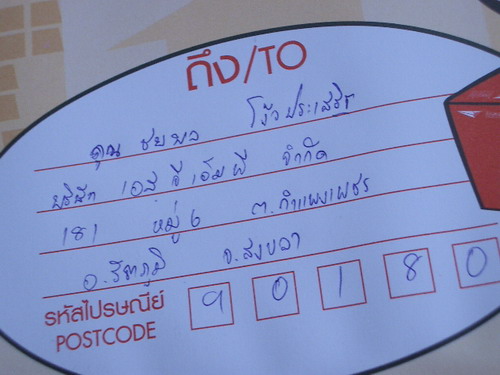 ถึง/TO
คุณ ชยพล โง้วประเสริฐ
บริษัท เอส จี เอ็ม พี จำกัด
181 หมู่ 6 ต.กำแพงเพชร
อ.รัตภูมิ จ.สงขลา
รหัสไปรษณีย์ 90180
POSTCODE